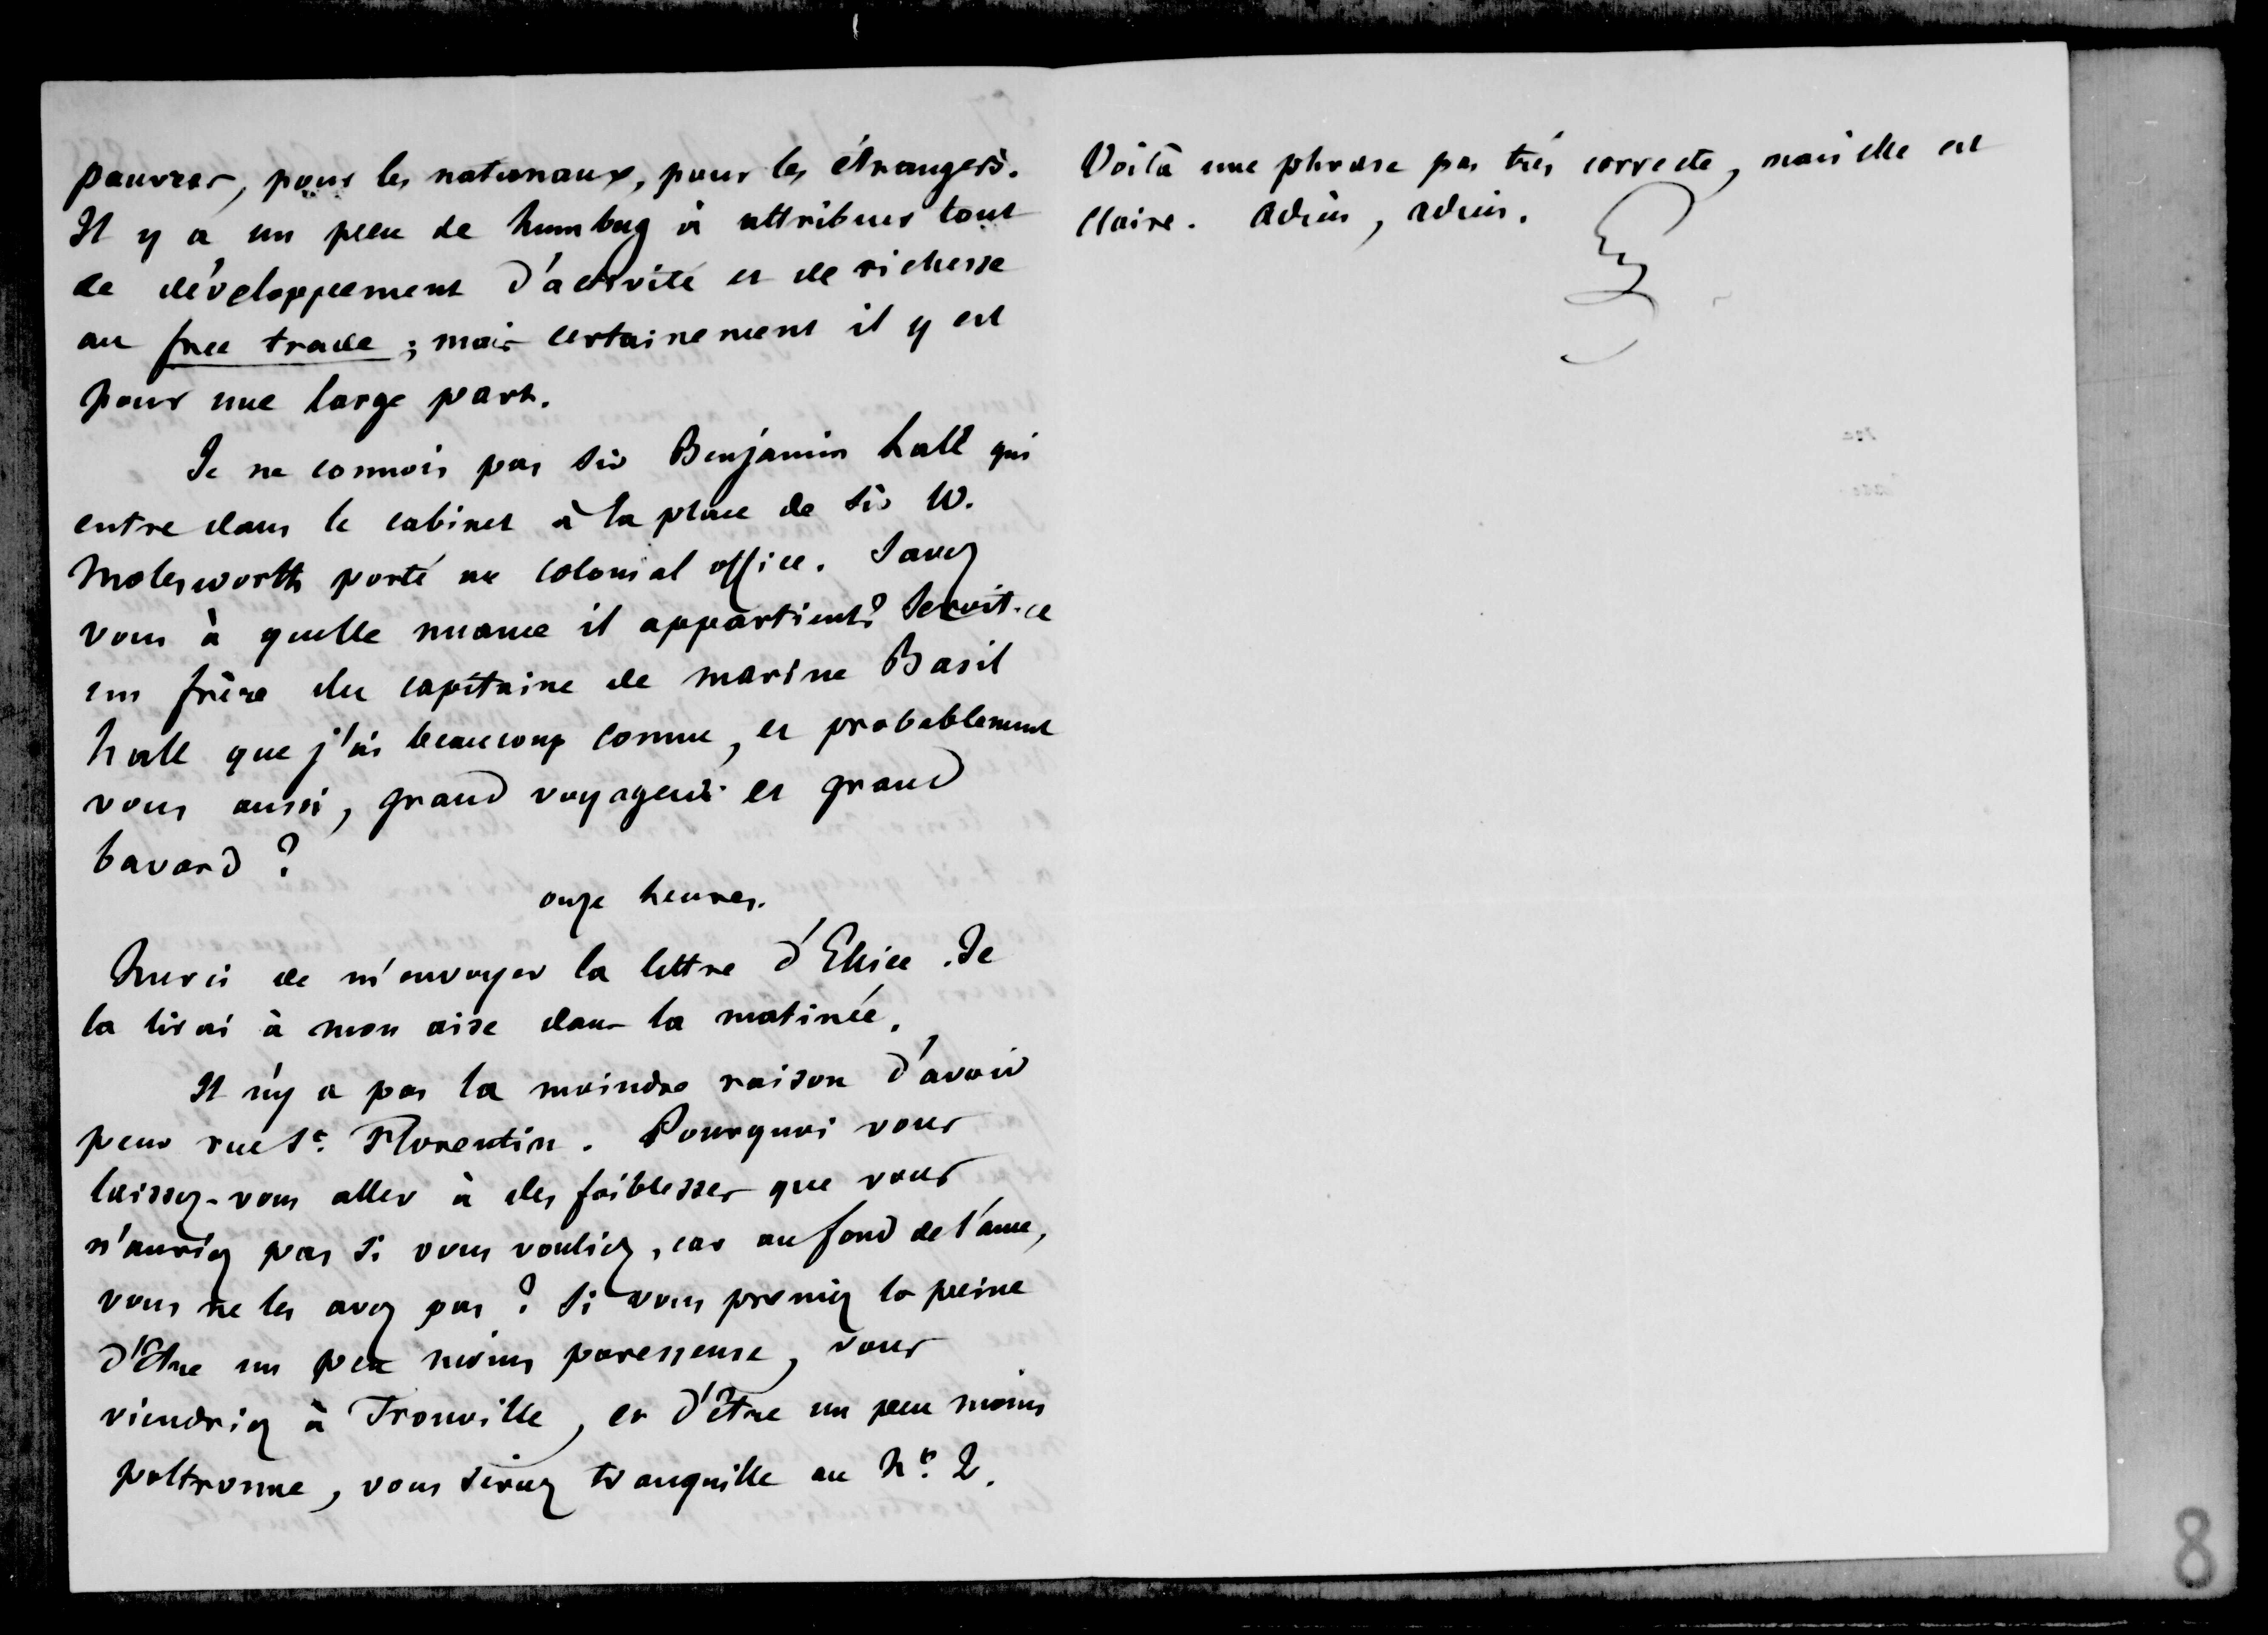 pauvres, pour les nationaux, pour les étrangers.
Il y a un peu de humbug à attribuer tout
ce développement d'activité et de richesse
au free trade ; mais certainement il y est
pour une large part.
Je ne connois pas Sir Benjamin Hall qui
entre dans le cabinet à la place de Sir W.
Molesworth porté au colonial office. Savez
vous à quelle nuance il appartient? Seroit-ce
un frère du capitaine de marine Basil
Hall que j'ai beaucoup connu, et probablement
vous aussi, grand voyageur et grand
bavard ?
onze heures.
Merci de m'envoyer la lettre d'Ellice. Je
la lirai à mon aise dans la matinée.
Il n'y a pas la moindre raison d'avoir
peur rue St. Florentin. Pourquoi vous
laissez-vous aller à des foiblesses que vous
n'auriez pas si vous vouliez, car au fond de l'ame,
vous ne les avez pas ? Si vous preniez la peine
d'être un peu moins paresseuse, vous
viendriez à Trouville, et d'être un peu moins
poltronne, vous seriez tranquille au No. 2.
Voilà une phrase pas très correcte, mais elle est
claire. Adieu, adieu.
8